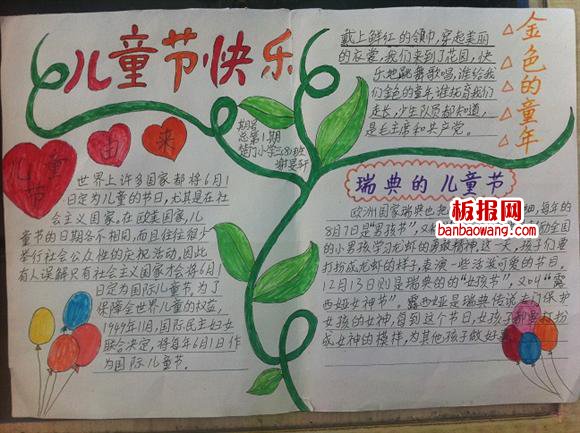 儿童节快乐
儿童节
由
来
世界上许多国家都将6月1
日定为儿童的节日,尤其是在社
会主义国家。在欧美国家,儿
童节的日期各不相同,而且往往很少
举行社会公众性的庆祝活动,因此
有人误解只有社会主义国家才会将6月1
日定为国际儿童节。为了
保障全世界儿童的权益,
1949年11月,国际民主妇女
联合决定,将每年6月1日作
为国际儿童节。
总第1期
戴上鲜红的领巾,穿起美丽
的衣裳,我们来到了花园,快
乐地跳舞歌唱,谁给我
们金色的童年,谁抚育我们
走长,少年队员都知道,
是毛主席和共产党。
金色的童年
瑞典的儿童节
欧洲国家瑞典也把 细,每年的
8月7日是“男孩节”,又 全国
的小男孩学习龙虾的勇敢精神,这一天,孩子们要
打扮成龙虾的样子,表演一些活泼可爱的节目。
12月13日则是瑞典的的“女孩节”,又叫“露
西娅女神节”。露西娅是瑞典传说专门保护
女孩的女神,每到这个节日,女孩子都要打扮
成女神的模样,为其他孩子做好
板报网
banbaowang.com